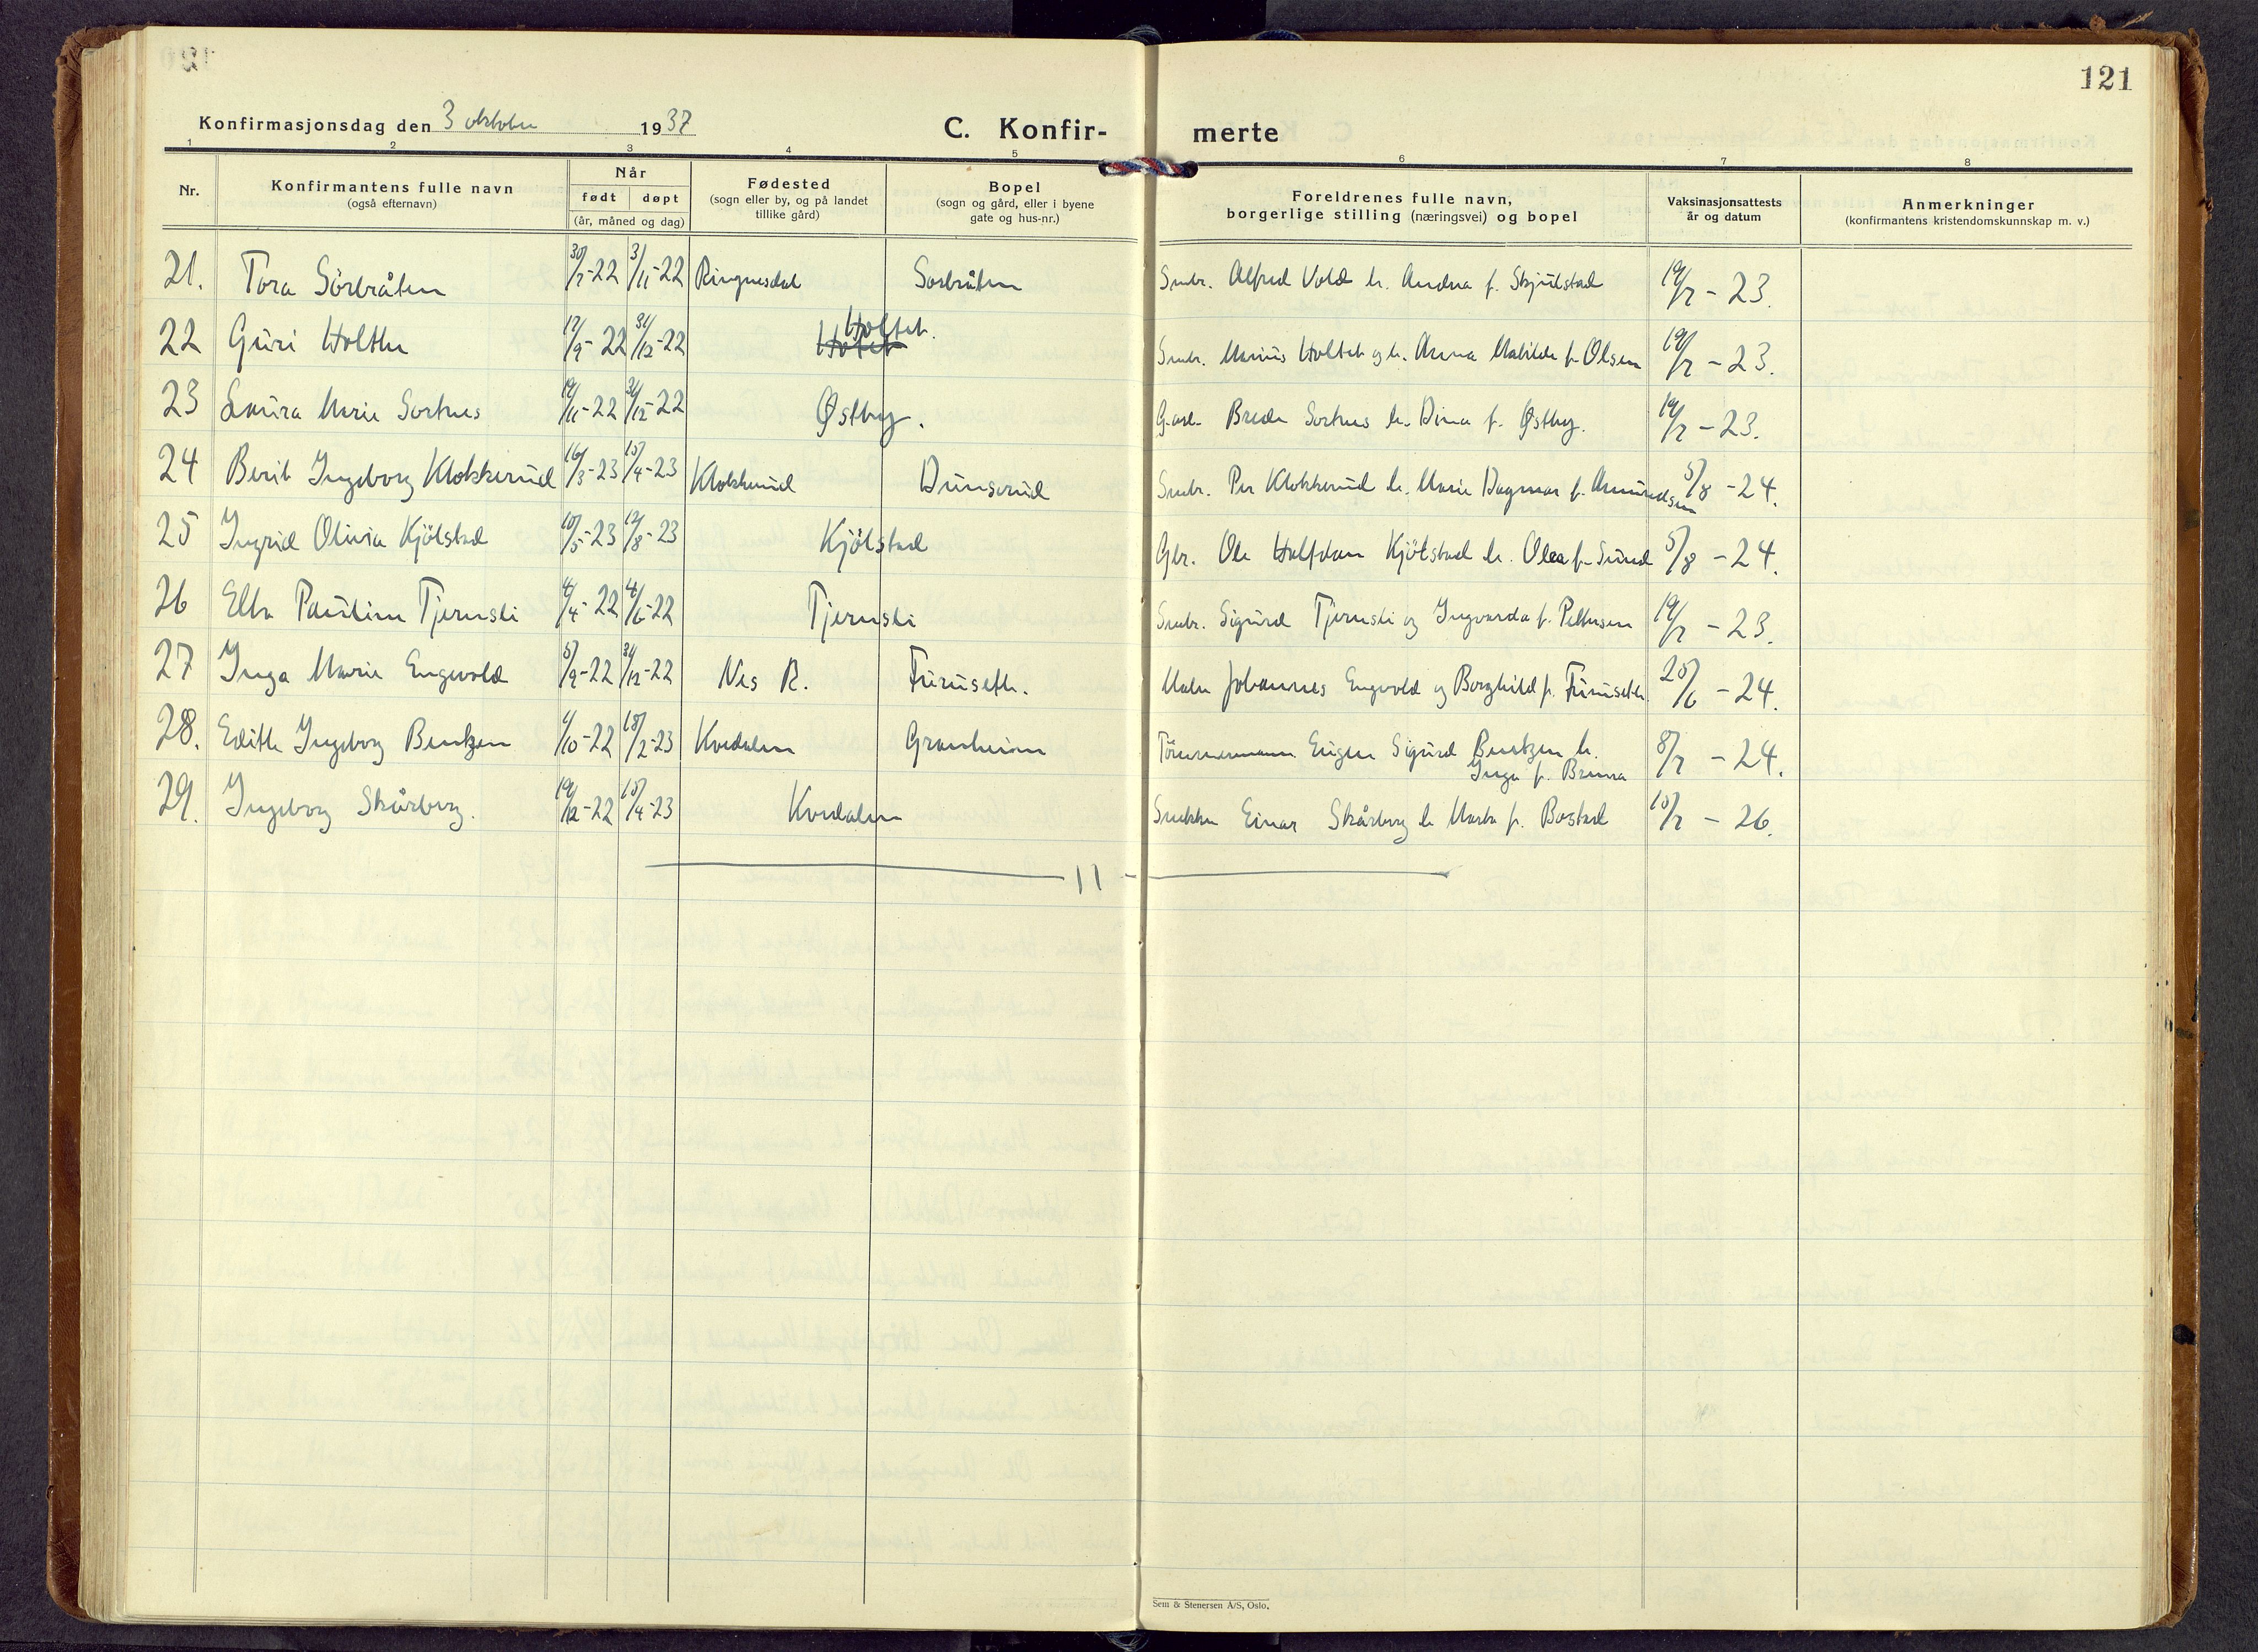 121
Konfirmasjonsdag den 3 oktober 1937
C. Konfir- merte
1 2 3 4 5 6 7 8
Nr.
Konfirmantens fulle navn
(også efternavn)
Når
født døpt
(år, måned og dag)
Fødested
(sogn eller by, og på landet
tillike gård)
Bopel
(sogn og gård, eller i byene
gate og hus-nr.)
Foreldrenes fulle navn,
borgerlige stilling (næringsvei) og bopel
Vaksinasjonsattests
år og datum
Anmerkninger
(konfirmantens kristendomskunnskap m. v.)
21. Tora Sörbråten 30/7-22 3/11-22 Ringnesdal Sörbråten Smbr. Alfred Vold h. Andrea f. Skjulstad 19/7 - 23.
22 Guri Holther 17/9-22 31/12-22 Holtet Holtet. Smbr. Marius Holtet og h. Anna Mathilde f. Olsen 19/7 - 23.
23 Laura Marie Sorknes 19/11-22 31/12-22 Østby. Gaarbr. Brede Sorknes h. Dina f. Østby. 19/7 - 23.
24 Berit Ingeborg Klokkerud 16/3-23 15/4-23 Klokkerud Dunserud Smbr. Per Klokkerud h. Marie Dagmar f. Amundsen 5/8 - 24.
25 Ingrid Olivia Kjölstad 10/5-23 12/8-23 Kjölstad Gbr. Ole Halfdan Kjölstad h. Olea f. Sund 5/8 - 24.
26 Elba Pauline Tjernsli 4/4-22 4/6-22 Tjernsli Smbr. Sigurd Tjernsli og Ingvarda f. Pettersen 19/7 - 23.
27 Inga Marie Engvold 5/9-22 31/12-22 Nes R. Furuseth. Maler Johannes Engvold og Borghild f. Furuseth. 20/6 - 24.
28. Edith Ingeborg Bentzen 4/10-22 18/2-23 Kvedalen Granheim Tömmermann Eugen Sigurd Bentzen h.
Inga f. Bruma 8/7 - 24.
29. Ingeborg Skårberg. 19/12-22 15/4-23 Kvedalen Snekker Einar Skårberg h. Marta f. Bostad 10/7 - 26.
Sem & Stenersen A/S, Oslo.